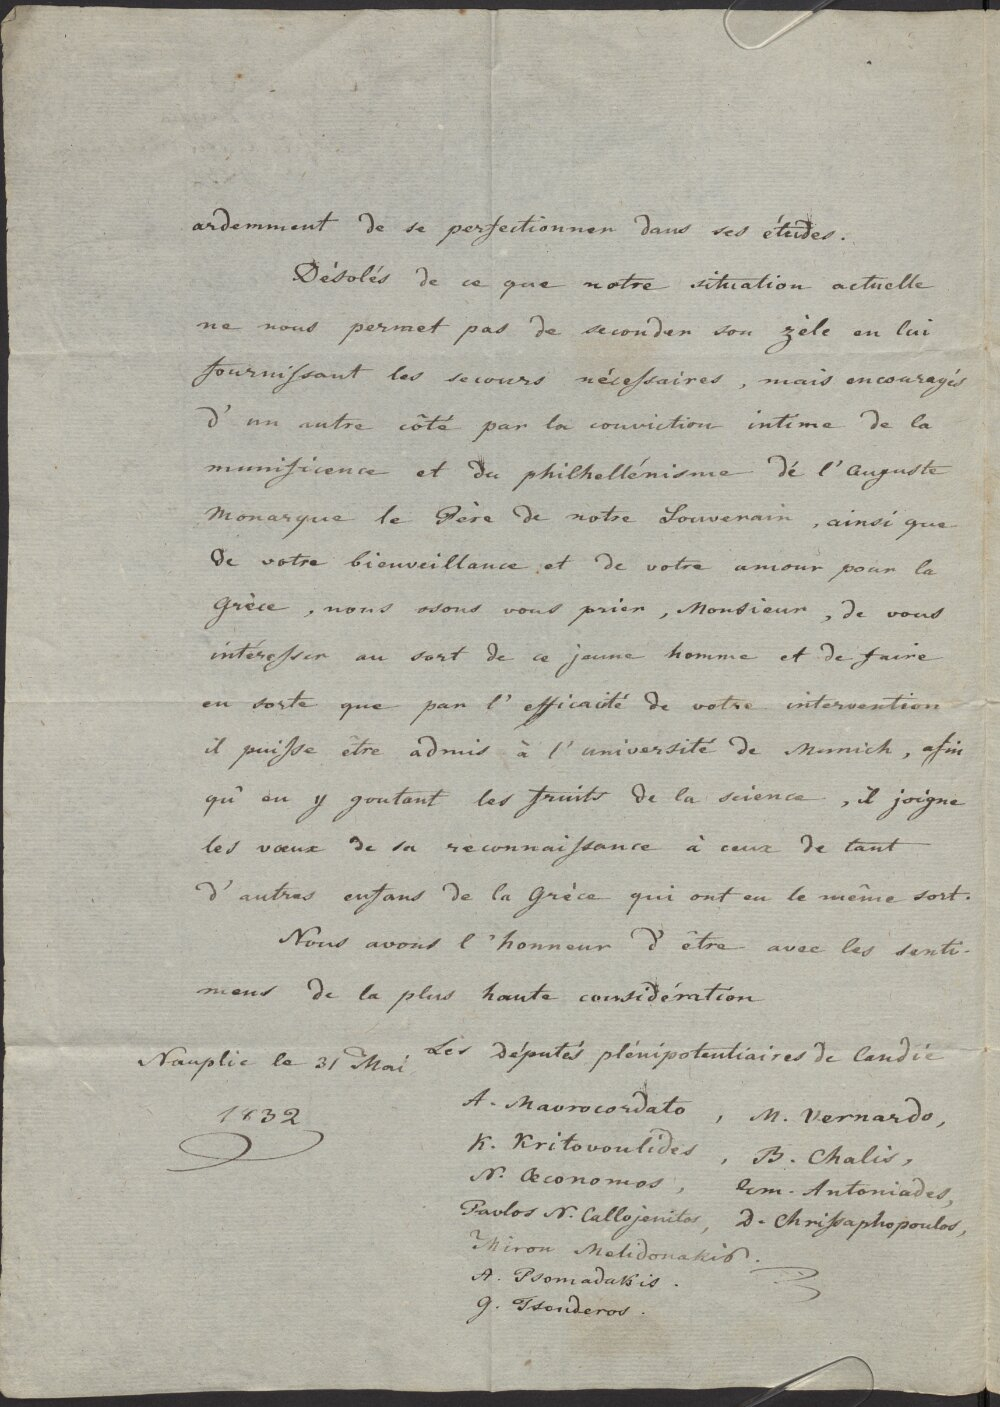 ardemment de se perfectionner dans ses études.
Désolés de ce que notre situation actuelle
ne nous permet pas de seconder son zèle en lui
fournissant les secours nécessaires, mais encouragés
d'un autre côté par la conviction intime de la
munificence et du philhellénisme dé l'Auguste
Monarque le Père de notre Souverain, ainsi que
de votre bienveillance et de votre amour pour la
Grèce, nous osons vous prier, Monsieur, de vous
intéresser au sort de ce jeune homme et de faire
en sorte que par l'efficacité de votre intervention
il puisse être admis à l'université de Munich, afin
qu'en y goutant les fruits de la science, il joigne
les vœux de sa reconnaissance à ceux de tant
d'autres enfans de la Grèce qui ont eu le même sort.
Nous avons l'honneur d'être avec les senti-
mens de la plus haute considération
Nauplie le 31 Mai
1832
Les Députés plénipotentiaires de Candie
A. Mavrocordato, M. Vernardo,
K. Kritovoulides, B. Chalis,
N. Œconomos, Em. Antoniades,
Pavlos N. Callojenitos, D. Chrissaphopoulos,
Miron Melidonakis.
A. Psomadakis.
G. Tsouderos.